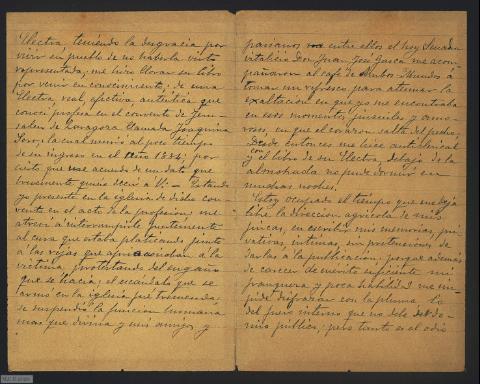 Electra, teniendo la desgracia por
vivir en pueblo de no haberla visto
representada, me hizo llorar su libro
por venir en conocimiento, de una
Electra real, efectiva, auténtica que
conocí profesa en el convento de Jeru-
salen de Zaragoza llamada Joaquina
la cual murió al poco tiempo
de su ingreso en el año 1834; por
cierto que me acuerdo de un dato que
brevemente quiero decir a V: — Estando
yo presente en la iglesia de dicho con-
vento en el acto de la profesion me
atreví á interrumpirle fuertemente
al cura que estaba platicando junto
á las rejas que aprisionaban á la
víctima, protestando del engaño
que se hacía; el escándalo que se
armó en la iglesia fué tremendo
se suspendió la función humana
mas que divina y mis amigos, y
paisanos entre ellos el hoy Senador
vitalicio Don Juan José Gasca me acom-
pañaron al café de Ambos Mundos á
tomar un refresco para atenuar la
exaltación en que yo me encontraba
en esos momentos, juveniles y amo-
rosos, en que el corazon salta del pecho,
Desde entonces me hice anticlerical
y con el libro de su Electra, debajo de la
almohada no pude dormir en
muchas noches.
Estoy ocupado el tiempo que me deja
libre la direccion agrícola de mis
fincas, en escribir mis memorias, pri-
vativas, íntimas, sin pretensiones de
darlas á la publicacion, porque además
de carecer de mérito suficiente mi
franqueza y poca habilidad me im-
pide disfrazar con la pluma, lo
del fuero interno que no debe ser do-
minio público; pero tanto es el odio